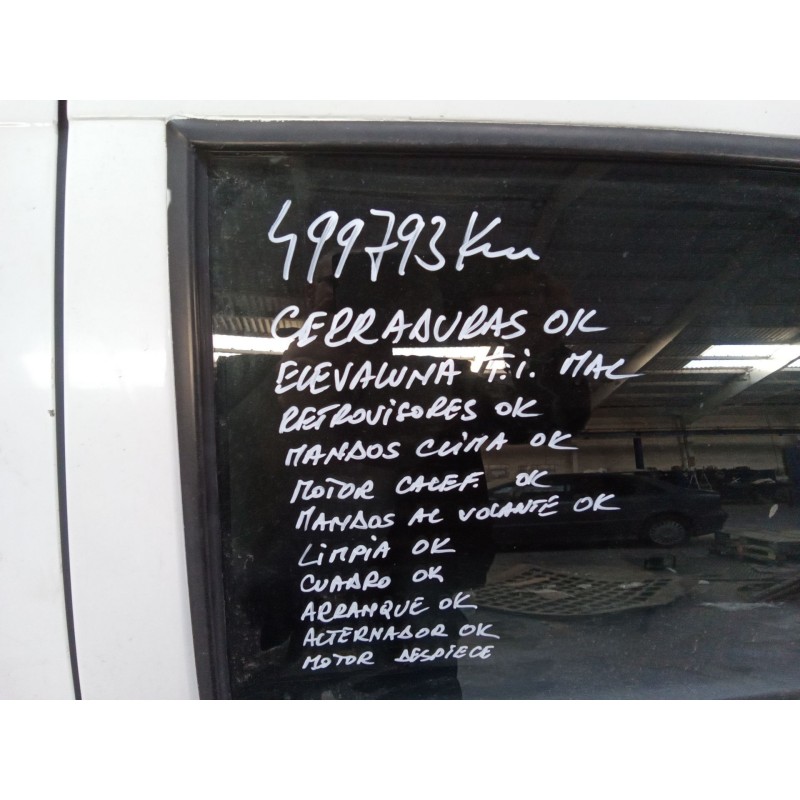 499793 Km
CERRADURAS OK
ELEVALUNA T.I. MAL
RETROVISORES OK
MANDOS CLIMA OK
MOTOR CALEF. OK
MANDOS AL VOLANTE OK
LIMPIA OK
CUADRO OK
ARRANQUE OK
ALTERNADOR OK
MOTOR DESPIECE